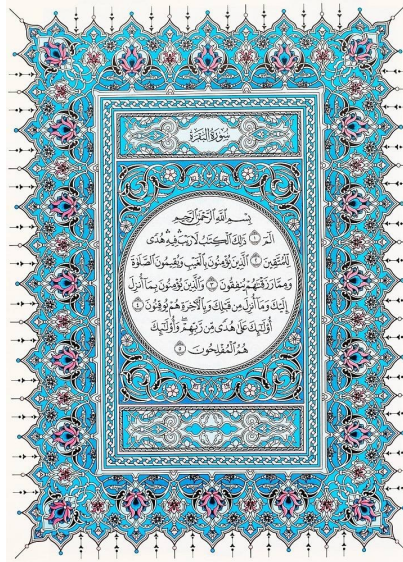 سُورَةُ البَقَرَةِ
بِسْمِ اللَّهِ الرَّحْمَٰنِ الرَّحِيمِ
الٓمٓ ١ ذَٰلِكَ الْكِتَابُ لَا رَيْبَ فِيهِ هُدًى
لِّلْمُتَّقِينَ ٢ الَّذِينَ يُؤْمِنُونَ بِالْغَيْبِ وَيُقِيمُونَ الصَّلَوٰةَ
وَمِمَّا رَزَقْنَاهُمْ يُنفِقُونَ ٣ وَالَّذِينَ يُؤْمِنُونَ بِمَا أُنزِلَ
إِلَيْكَ وَمَا أُنزِلَ مِن قَبْلِكَ وَبِالْآخِرَةِ هُمْ يُوقِنُونَ ٤
أُولَٰئِكَ عَلَىٰ هُدًى مِّن رَّبِّهِمْ ۖ وَأُولَٰئِكَ
هُمُ الْمُفْلِحُونَ ٥